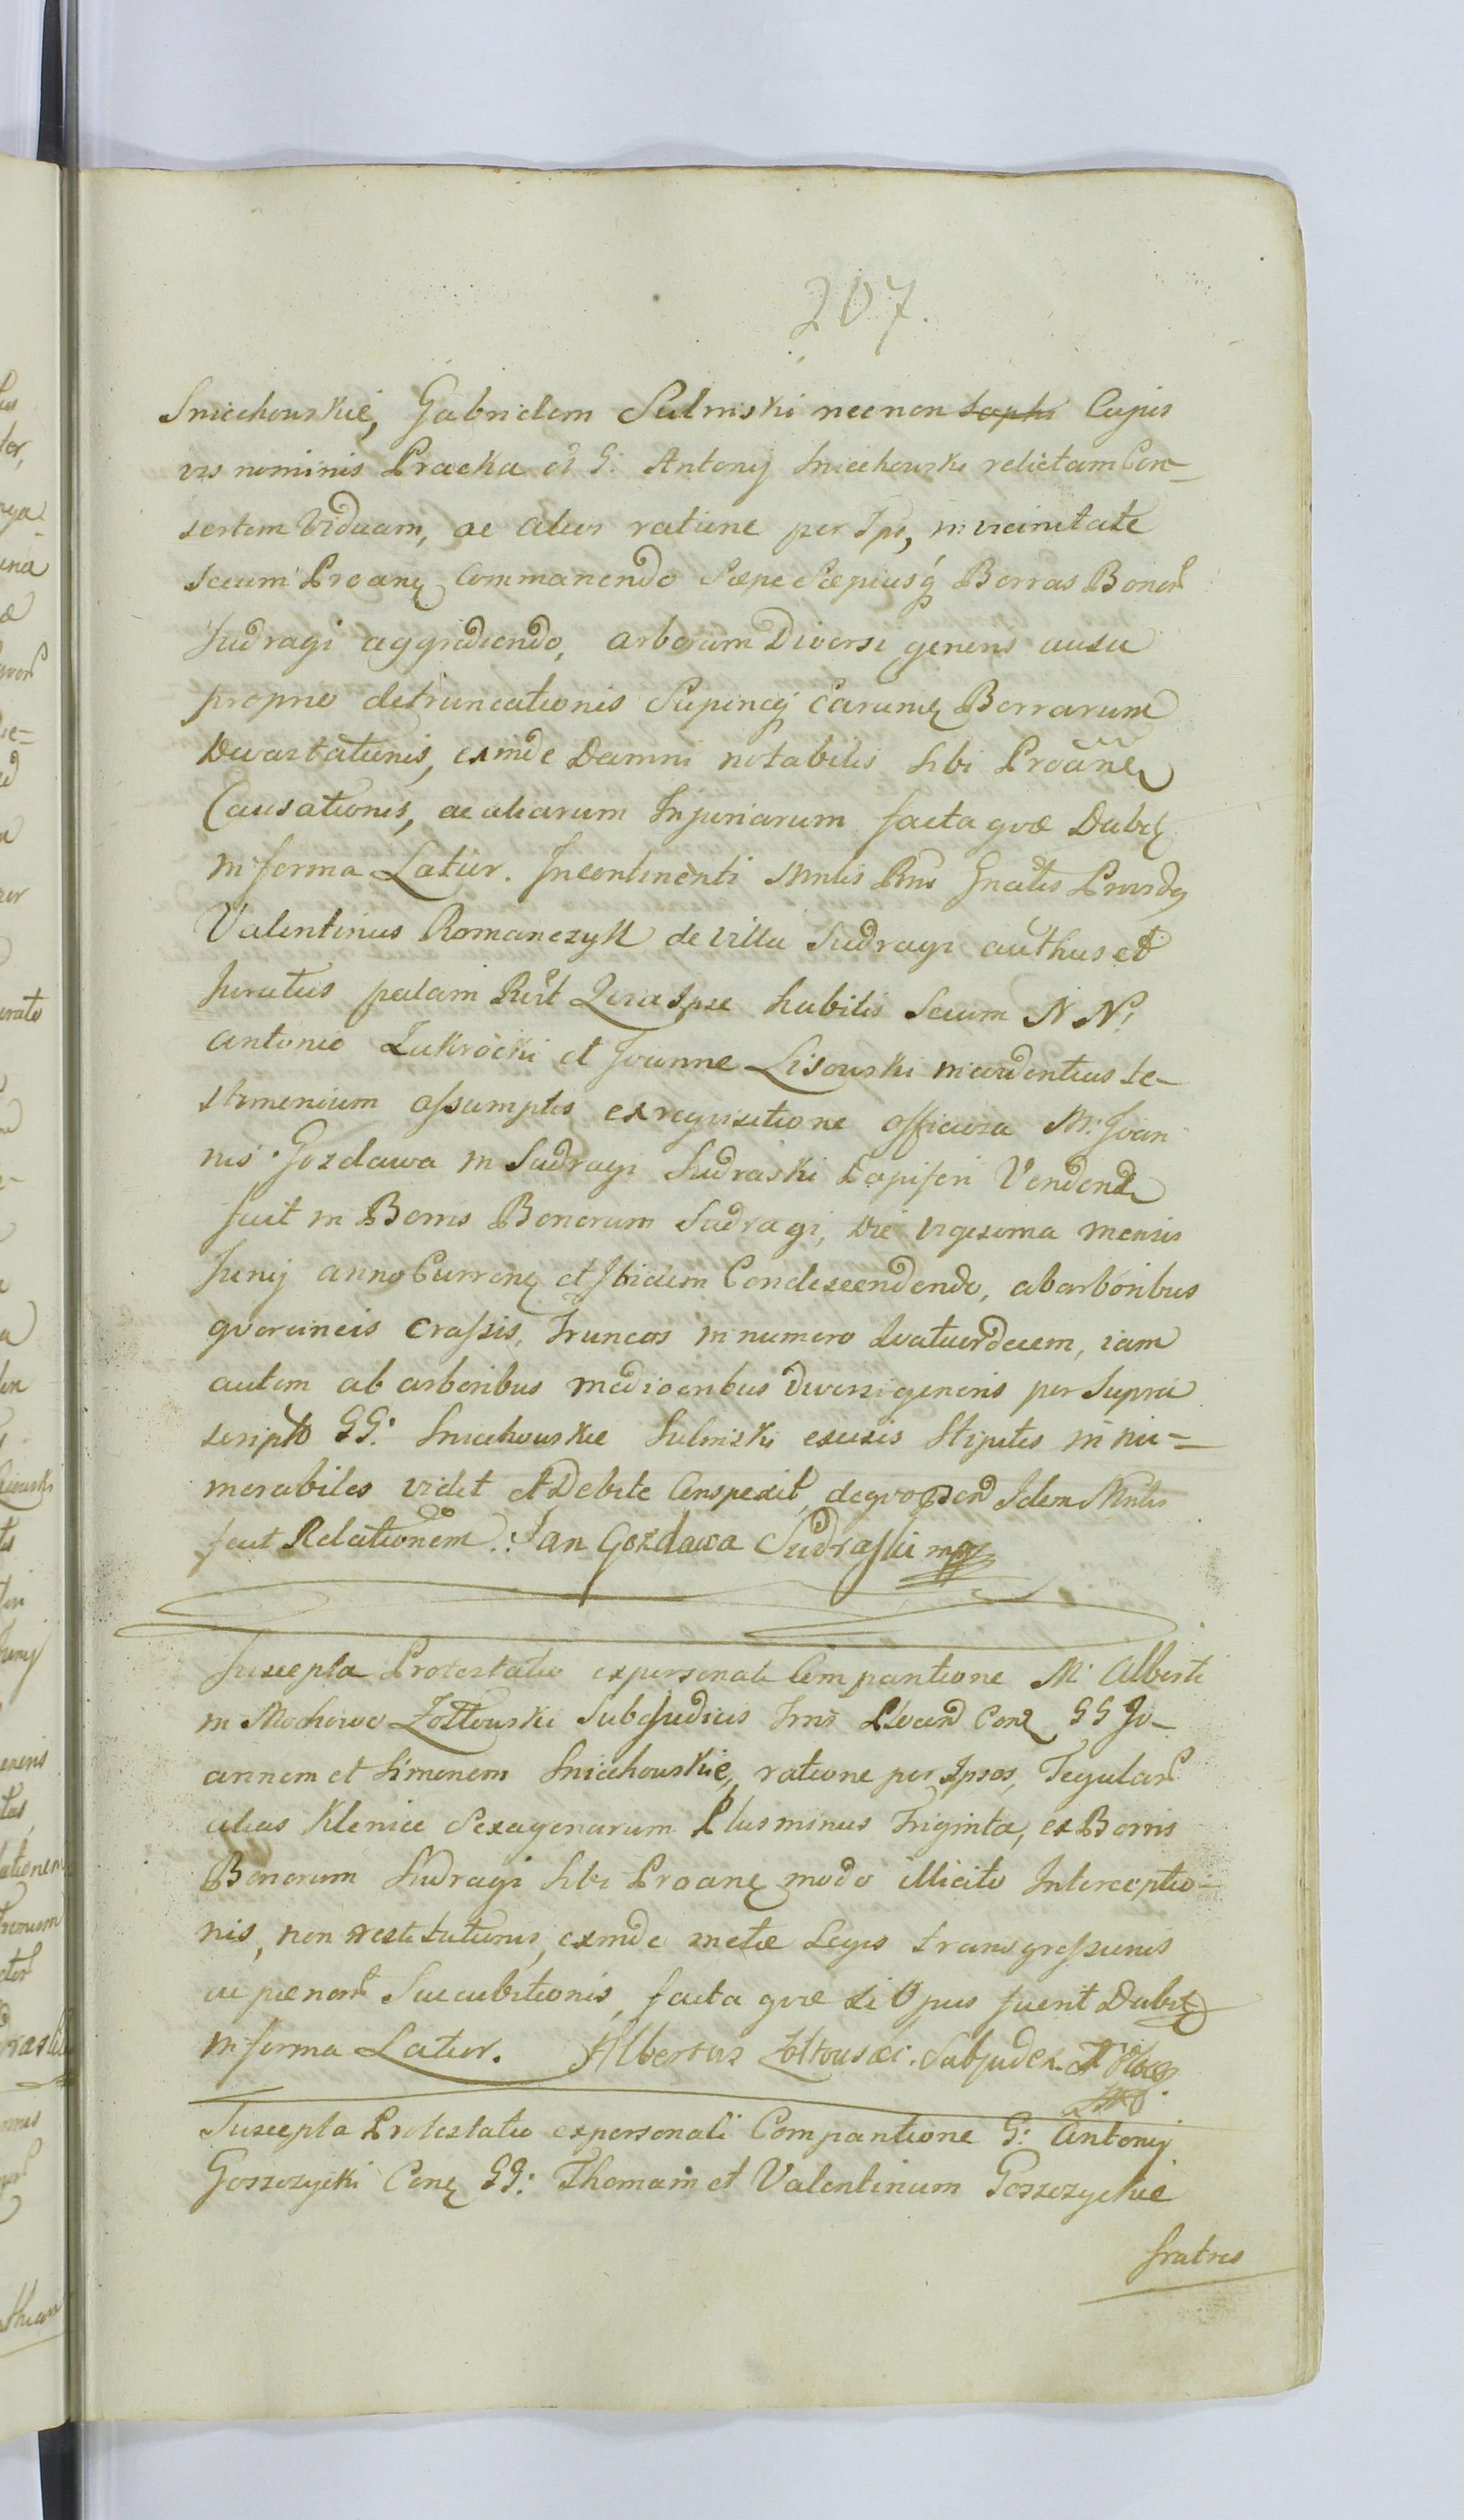 207.
Sniechowskie, Gabrielem Sulmski necnon Sophi Cujus
vis nominis Pracka et G: Antonij Sniechowski relictam Con-
sortem Viduam, ac alios ratione per Ips, in vicinitate
secum Proanę Commanendo Sæpe Sæpiusq Borras Bonor
Sudragi aggrediendo, arborum Diversi generis ausu
proprio detruncationis Supinaq earumę Borrarum
Devastationis, exinde Damni notabilis Sibi Proãnę
Causationis, ac aliarum Injuriarum facta qvæ Dabitę
in forma Latior. Incontinenti Mntis Rni Gnalis Prvsdę
Valentinus Romanczyk de Villa Sudragi authus et
Juratus palam Rcit Qvia Ipse habitis Secum N N:
Antonio Zukrocki et Joanne Lisowski in evidentius te-
stimonium assumptis ex reqvisitione officiosa M: Joan
nis Gozdawa in Sudragi Sudraski Dapiferi Vendend
fuit in Borris Bonorum Sudragi, Die vigesima mensis
Junij anno Currenę et Ibidem Condescendendo, ab arboribus
qvercineis Crassis, Truncos in numero Qvatuordecem, iam
autem ab arboribus mediocribus Diversi generis per Supra
scripto GG: Sniechowskie Sulmski excisis Stipites in nu-
merabiles vidit et Debite Conspexit, de qvo Idem Mntis
fecit Relationem. Jan Gozdawa Sudraski mp
Suscepta Protestatio ex personali Comparitione M: Alberti
in Mochowo Zołtowski Subjudicis Trris Plocen Conę GG Jo-
annem et Simonem Sniechowskie, ratione per Ipsos, Tegular
alias Klenice Sexagenarum Plus minus Triginta, ex Borris
Bonorum Sudragi Sibi Proanę modo illicito Interceptio-
nis, non restitutionis, exinde metæ Legis transgressionis
ac pænar Succubitionis, facta qvæ Si Opus fuerit Dabitę
in forma Latior. Albertus Zołtowski Subjudex T Ploc
mp
Suscepta Protestatio ex personali Comparitione G: Antonij
Goszczycki Conę GG: Thomam et Valentinum Goszczyckie
fratres